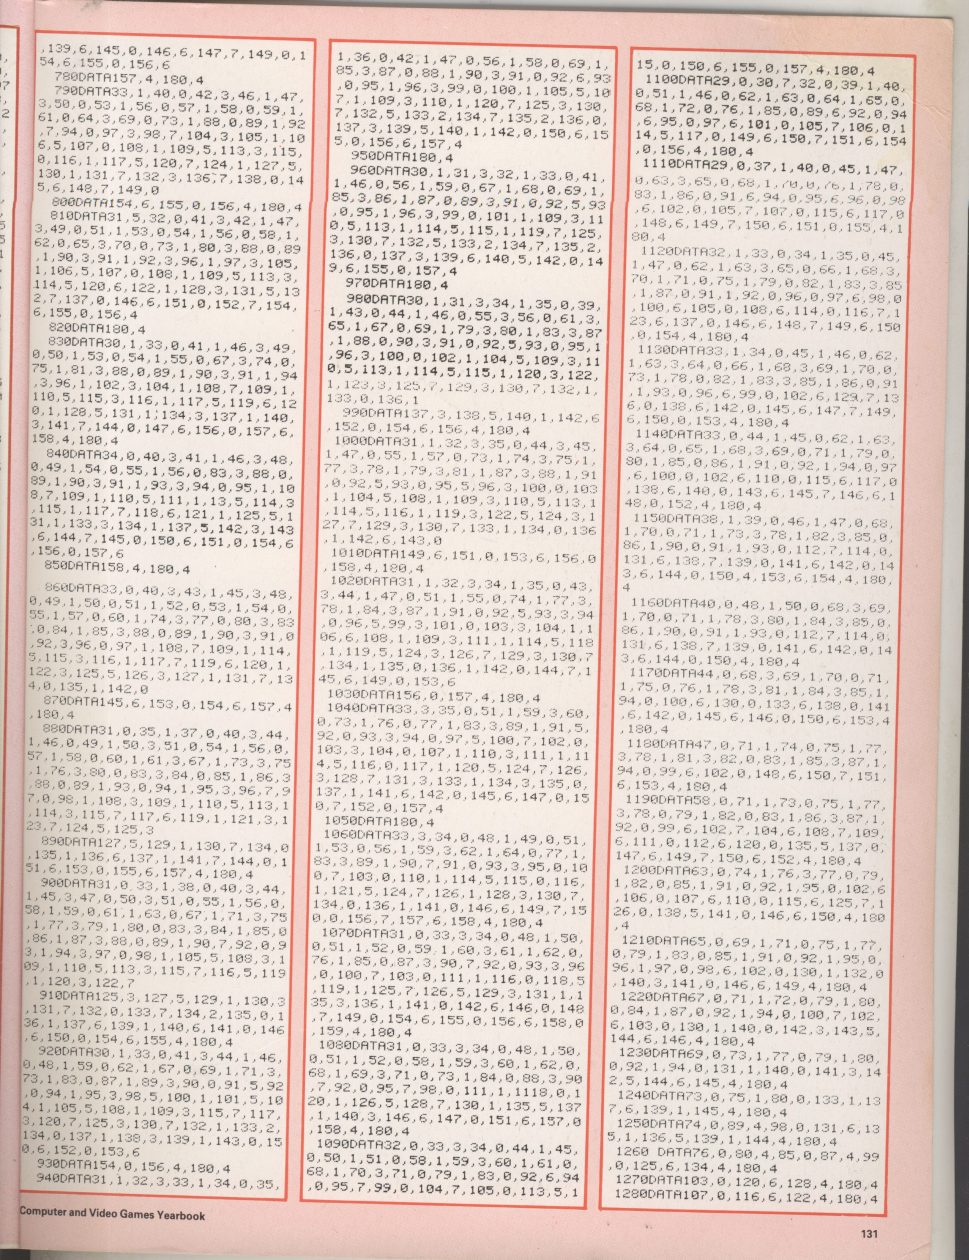 ,139,6,145,0,146,6,147,7,149,0,1
54,6,155,0,156,6
780DATA157,4,180,4
790DATA33,1,40,0,42,3,46,1,47
,3,50,0,53,1,56,0,57,1,58,0,59,1,
61,0,64,3,69,0,73,1,88,0,89,1,92
,7,94,0,97,3,98,7,104,3,105,1,10
6,5,107,0,108,1,109,5,113,3,115,
0,116,1,117,5,120,7,124,1,127,5,
130,1,131,7,132,3,136,7,138,0,14
5,6,148,7,149,0
800DATA154,6,155,0,156,4,180,4
810DATA31,5,32,0,41,3,42,1,47
,3,49,0,51,1,53,0,54,1,56,0,58,1
,62,0,65,3,70,0,73,1,80,3,88,0,89
,1,90,3,91,1,92,3,96,1,97,3,105,
1,106,5,107,0,108,1,109,5,113,3,
114,5,120,6,122,1,128,3,131,5,13
2,7,137,0,146,6,151,0,152,7,154,
6,155,0,156,4
820DATA180,4
830DATA30,1,33,0,41,1,46,3,49
,0,50,1,53,0,54,1,55,0,67,3,74,0,
75,1,81,3,88,0,89,1,90,3,91,1,94
,3,96,1,102,3,104,1,108,7,109,1,
110,5,115,3,116,1,117,5,119,6,12
0,1,128,5,131,1,134,3,137,1,140,
3,141,7,144,0,147,6,156,0,157,6,
158,4,180,4
840DATA34,0,40,3,41,1,46,3,48
,0,49,1,54,0,55,1,56,0,83,3,88,0,
89,1,90,3,91,1,93,3,94,0,95,1,10
8,7,109,1,110,5,111,1,13,5,114,3
,115,1,117,7,118,6,121,1,125,5,1
31,1,133,3,134,1,137,5,142,3,143
,6,144,7,145,0,150,6,151,0,154,6
,156,0,157,6
850DATA158,4,180,4
860DATA33,0,40,3,43,1,45,3,48
,0,49,1,50,0,51,1,52,0,53,1,54,0,
55,1,57,0,60,1,74,3,77,0,80,3,83
,0,84,1,85,3,88,0,89,1,90,3,91,0
,92,3,96,0,97,1,108,7,109,1,114,
5,115,3,116,1,117,7,119,6,120,1,
122,3,125,5,126,3,127,1,131,7,13
4,0,135,1,142,0
870DATA145,6,153,0,154,6,157,4
,180,4
880DATA31,0,35,1,37,0,40,3,44
,1,46,0,49,1,50,3,51,0,54,1,56,0,
57,1,58,0,60,1,61,3,67,1,73,3,75
,1,76,3,80,0,83,3,84,0,85,1,86,3
,88,0,89,1,93,0,94,1,95,3,96,7,9
7,0,98,1,108,3,109,1,110,5,113,1
,114,3,115,7,117,6,119,1,121,3,1
23,7,124,5,125,3
890DATA127,5,129,1,130,7,134,0
,135,1,136,6,137,1,141,7,144,0,1
51,6,153,0,155,6,157,4,180,4
900DATA31,0,33,1,38,0,40,3,44
,1,45,3,47,0,50,3,51,0,55,1,56,0,
58,1,59,0,61,1,63,0,67,1,71,3,75
,1,77,3,79,1,80,0,83,3,84,1,85,0
,86,1,87,3,88,0,89,1,90,7,92,0,9
3,1,94,3,97,0,98,1,105,5,108,3,1
09,1,110,5,113,3,115,7,116,5,119
,1,120,3,122,7
910DATA125,3,127,5,129,1,130,3
,131,7,132,0,133,7,134,2,135,0,1
36,1,137,6,139,1,140,6,141,0,146
,6,150,0,154,6,155,4,180,4
920DATA30,1,33,0,41,3,44,1,46
,0,48,1,59,0,62,1,67,0,69,1,71,3,
73,1,83,0,87,1,89,3,90,0,91,5,92
,0,94,1,95,3,98,5,100,1,101,5,10
4,1,105,5,108,1,109,3,115,7,117,
3,120,7,125,3,130,7,132,1,133,2,
134,0,137,1,138,3,139,1,143,0,15
0,6,152,0,153,6
930DATA154,0,156,4,180,4
940DATA31,1,32,3,33,1,34,0,35,
1,36,0,42,1,47,0,56,1,58,0,69,1,
85,3,87,0,88,1,90,3,91,0,92,6,93
,0,95,1,96,3,99,0,100,1,105,5,10
7,1,109,3,110,1,120,7,125,3,130,
7,132,5,133,2,134,7,135,2,136,0,
137,3,139,5,140,1,142,0,150,6,15
5,0,156,6,157,4
950DATA180,4
960DATA30,1,31,3,32,1,33,0,41
,1,46,0,56,1,59,0,67,1,68,0,69,1,
85,3,86,1,87,0,89,3,91,0,92,5,93
,0,95,1,96,3,99,0,101,1,109,3,11
0,5,113,1,114,5,115,1,119,7,125,
3,130,7,132,5,133,2,134,7,135,2,
136,0,137,3,139,6,140,5,142,0,14
9,6,155,0,157,4
970DATA180,4
980DATA30,1,31,3,34,1,35,0,39
,1,43,0,44,1,46,0,55,3,56,0,61,3,
65,1,67,0,69,1,79,3,80,1,83,3,87
,1,88,0,90,3,91,0,92,5,93,0,95,1
,96,3,100,0,102,1,104,5,109,3,11
0,5,113,1,114,5,115,1,120,3,122,
1,123,3,125,7,129,3,130,7,132,1,
133,0,136,1
990DATA137,3,138,5,140,1,142,6
,152,0,154,6,156,4,180,4
1000DATA31,1,32,3,35,0,44,3,45
,1,47,0,55,1,57,0,73,1,74,3,75,1,
77,3,78,1,79,3,81,1,87,3,88,1,91
,0,92,5,93,0,95,5,96,3,100,0,103
,1,104,5,108,1,109,3,110,5,113,1
,114,5,116,1,119,3,122,5,124,3,1
27,7,129,3,130,7,133,1,134,0,136
,1,142,6,143,0
1010DATA149,6,151,0,153,6,156,0
,158,4,180,4
1020DATA31,1,32,3,34,1,35,0,43
,3,44,1,47,0,51,1,55,0,74,1,77,3,
78,1,84,3,87,1,91,0,92,5,93,3,94
,0,96,5,99,3,101,0,103,3,104,1,1
06,6,108,1,109,3,111,1,114,5,118
,1,119,5,124,3,126,7,129,3,130,7
,134,1,135,0,136,1,142,0,144,7,1
45,6,149,0,153,6
1030DATA156,0,157,4,180,4
1040DATA33,3,35,0,51,1,59,3,60
,0,73,1,76,0,77,1,83,3,89,1,91,5,
92,0,93,3,94,0,97,5,100,7,102,0,
103,3,104,0,107,1,110,3,111,1,11
4,5,116,0,117,1,120,5,124,7,126,
3,128,7,131,3,133,1,134,3,135,0,
137,1,141,6,142,0,145,6,147,0,15
0,7,152,0,157,4
1050DATA180,4
1060DATA33,3,34,0,48,1,49,0,51
,1,53,0,56,1,59,3,62,1,64,0,77,1,
83,3,89,1,90,7,91,0,93,3,95,0,10
0,7,103,0,110,1,114,5,115,0,116,
1,121,5,124,7,126,1,128,3,130,7,
134,0,136,1,141,0,146,6,149,7,15
0,0,156,7,157,6,158,4,180,4
1070DATA31,0,33,3,34,0,48,1,50,
0,51,1,52,0,59,1,60,3,61,1,62,0,
76,1,85,0,87,3,90,7,92,0,93,3,96
,0,100,7,103,0,111,1,116,0,118,5
,119,1,125,7,126,5,129,3,131,1,1
35,3,136,1,141,0,142,6,146,0,148
,7,149,0,154,6,155,0,156,6,158,0
,159,4,180,4
1080DATA31,0,33,3,34,0,48,1,50,
0,51,1,52,0,58,1,59,3,60,1,62,0,
68,1,69,3,71,0,73,1,84,0,88,3,90
,7,92,0,95,7,98,0,111,1,1118,0,1
20,1,126,5,128,7,130,1,135,5,137
,1,140,3,146,6,147,0,151,6,157,0
,158,4,180,4
1090DATA32,0,33,3,34,0,44,1,45,
0,50,1,51,0,58,1,59,3,60,1,61,0,
68,1,70,3,71,0,79,1,83,0,92,6,94
,0,95,7,99,0,104,7,105,0,113,5,1
15,0,150,6,155,0,157,4,180,4
1100DATA29,0,30,7,32,0,39,1,40,
0,51,1,46,0,62,1,63,0,64,1,65,0,
68,1,72,0,76,1,85,0,89,6,92,0,94
,6,95,0,97,6,101,0,105,7,106,0,1
14,5,117,0,149,6,150,7,151,6,154
,0,156,4,180,4
1110DATA29,0,37,1,40,0,45,1,47,
0,63,3,65,0,68,1,70,0,76,1,78,0,
83,1,86,0,91,6,94,0,95,6,96,0,98
,6,102,0,105,7,107,0,115,6,117,0
,148,6,149,7,150,6,151,0,155,4,1
80,4
1120DATA32,1,33,0,34,1,35,0,45
,1,47,0,62,1,63,3,65,0,66,1,68,3,
70,1,71,0,75,1,79,0,82,1,83,3,85
,1,87,0,91,1,92,0,96,0,97,6,98,0
,100,6,105,0,108,6,114,0,116,7,1
23,6,137,0,146,6,148,7,149,6,150
,0,154,4,180,4
1130DATA33,1,34,0,45,1,46,0,62
,1,63,3,64,0,66,1,68,3,69,1,70,0,
73,1,78,0,82,1,83,3,85,1,86,0,91
,1,93,0,96,6,99,0,102,6,129,7,13
6,0,138,6,142,0,145,6,147,7,149,
6,150,0,153,4,180,4
1140DATA33,0,44,1,45,0,62,1,63
,3,64,0,65,1,68,3,69,0,71,1,79,0,
80,1,85,0,86,1,91,0,92,1,94,0,97
,6,100,0,102,6,110,0,115,6,117,0
,138,6,140,0,143,6,145,7,146,6,1
48,0,152,4,180,4
1150DATA38,1,39,0,46,1,47,0,68
,1,70,0,71,1,73,3,78,1,82,3,85,0,
86,1,90,0,91,1,93,0,112,7,114,0,
131,6,138,7,139,0,141,6,142,0,14
3,6,144,0,150,4,153,6,154,4,180,
4
1160DATA40,0,48,1,50,0,68,3,69
,1,70,0,71,1,78,3,80,1,84,3,85,0,
86,1,90,0,91,1,93,0,112,7,114,0,
131,6,138,7,139,0,141,6,142,0,14
3,6,144,0,150,4,180,4
1170DATA44,0,68,3,69,1,70,0,71
,1,75,0,76,1,78,3,81,1,84,3,85,1
,94,0,100,6,130,0,133,6,138,0,141
,6,142,0,145,6,146,0,150,6,153,4
,180,4
1180DATA47,0,71,1,74,0,75,1,77
,3,78,1,81,3,82,0,83,1,85,3,87,1
,94,0,99,6,102,0,148,6,150,7,151
,6,153,4,180,4
1190DATA58,0,71,1,73,0,75,1,77
,3,78,0,79,1,82,0,83,1,86,3,87,1
,92,0,99,6,102,7,104,6,108,7,109
,6,111,0,112,6,120,0,135,5,137,0,
147,6,149,7,150,6,152,4,180,4
1200DATA63,0,74,1,76,3,77,0,79
,1,82,0,85,1,91,0,92,1,95,0,102,6
,106,0,107,6,110,0,115,6,125,7,1
26,0,138,5,141,0,146,6,150,4,180
,4
1210DATA65,0,69,1,71,0,75,1,77
,0,79,1,83,0,85,1,91,0,92,1,95,0,
96,1,97,0,98,6,102,0,130,1,132,0
,140,3,141,0,146,6,149,4,180,4
1220DATA67,0,71,1,72,0,79,1,80
,0,84,1,87,0,92,1,94,0,100,7,102
,6,103,0,130,1,140,0,142,3,143,5
,144,6,146,4,180,4
1230DATA69,0,73,1,77,0,79,1,80
,0,92,1,94,0,131,1,140,0,141,3,14
2,5,144,6,145,4,180,4
1240DATA73,0,75,1,80,0,133,1,13
7,6,139,1,145,4,180,4
1250DATA74,0,89,4,98,0,131,6,13
5,1,136,5,139,1,144,4,180,4
1260 DATA76,0,80,4,85,0,87,4,99
,0,125,6,134,4,180,4
1270DATA103,0,120,6,128,4,180,4
1280DATA107,0,116,6,122,4,180,4
Computer and Video Games Yearbook
131